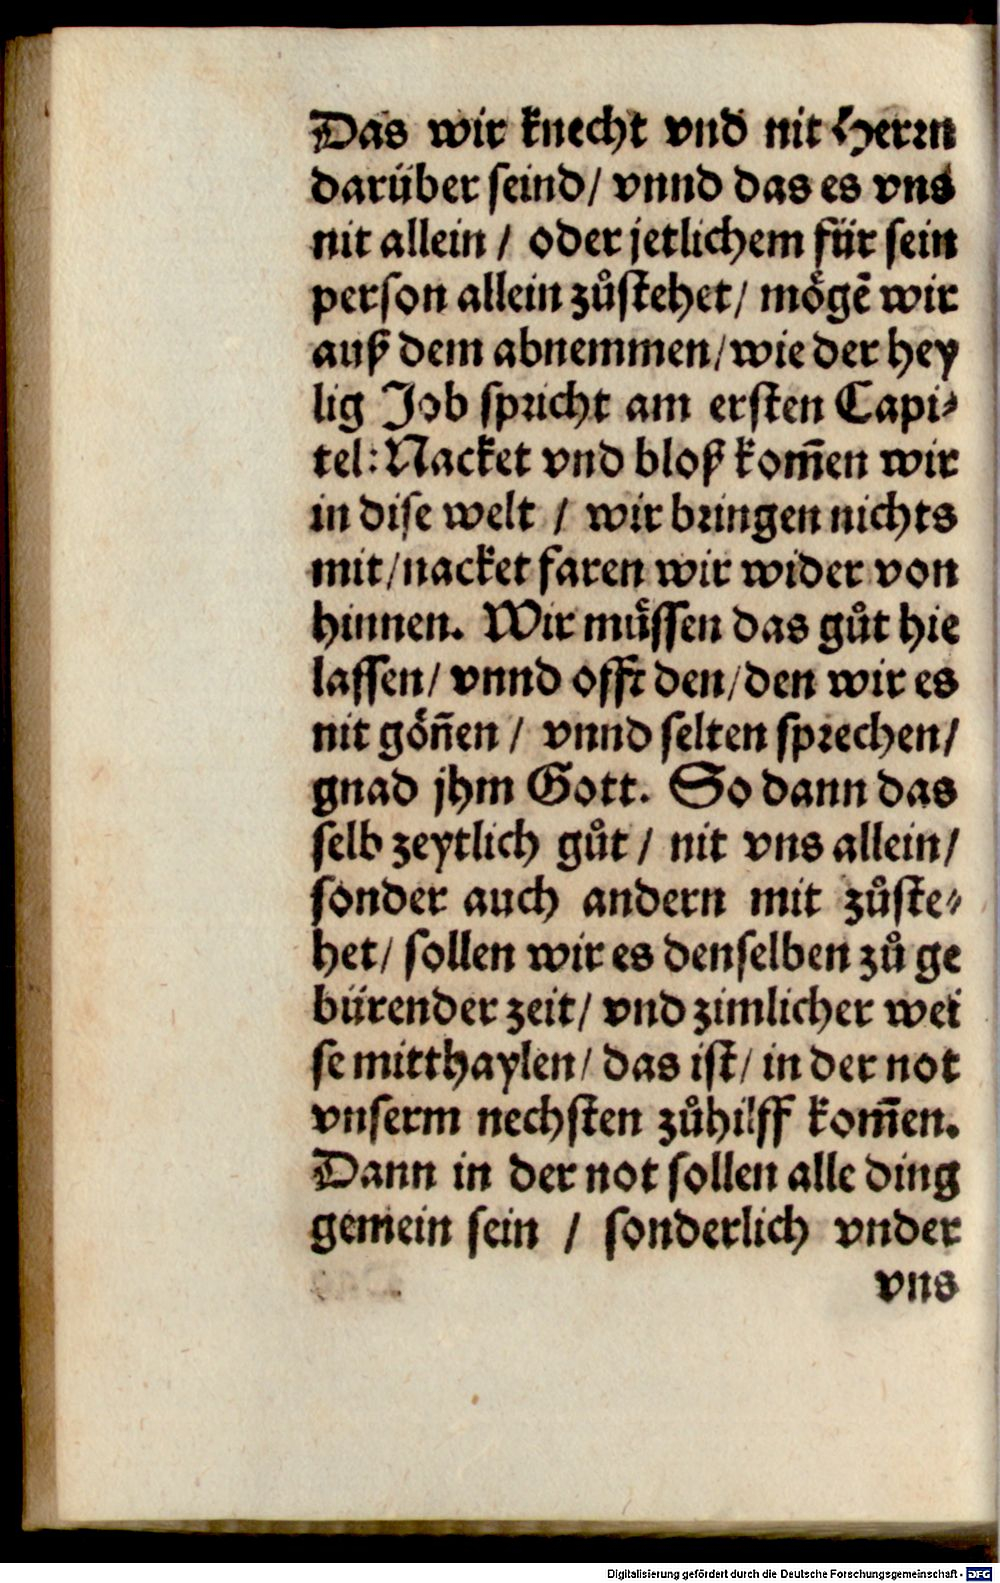 Das wir knecht vnd nit Herrn
darüber seind/ vnnd das es vns
nit allein / oder jetlichem für sein
person allein zůstehet/ mögē wir
auß dem abnemmen/wie der hey
lig Job spricht am ersten Capi-
tel: Nacket vnd bloß kom̄en wir
in dise welt / wir bringen nichts
mit/nacket faren wir wider von
hinnen. Wir müssen das gůt hie
lassen/ vnnd offt den/den wir es
nit gön̄en / vnnd selten sprechen/
gnad jhm Gott. So dann das
selb zeytlich gůt / nit vns allein/
sonder auch andern mit zůste-
het/ sollen wir es denselben zů ge
bürender zeit/ vnd zimlicher wei
se mitthaylen/ das ist/ in der not
vnserm nechsten zůhilff kom̄en.
Dann in der not sollen alle ding
gemein sein / sonderlich vnder
vns
Digitalisierung gefördert durch die Deutsche Forschungsgemeinschaft - DFG